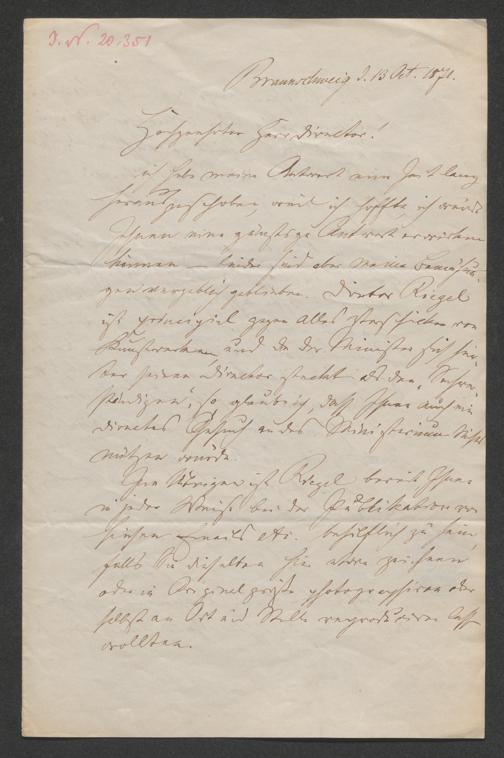 I. N. 20.351
Braunschweig d. 13 Oct. 1871.
Hochgeehrter Herr Director!
ich habe meine Antwort eine Zeit lang
herausgeschoben, weil ich hoffte, ich würde
Ihnen eine günstige Antwort erwirken
können – leider sind aber meine Bemühun-
gen vergeblich geblieben. Director Riegel
ist principiel gegen alles Verschicken von
Kunstwerken, und da der Minister sich hin-
ter seinen Director steckt als den „Sachver-
ständigen", so glaube ich, daß Ihnen auch ein
directes Gesuch an das Ministerium nichts
nützen würde.
Im Übrigen ist Riegel bereit Ihnen
in jeder Weise bei der Publikation von
Emails etc. behilflich zu sein,
falls Sie dieselben hier etwa zeichnen
oder in Originalgröße photographiren oder
selbst an Ort und Stelle reproduciren lassen
wollten.